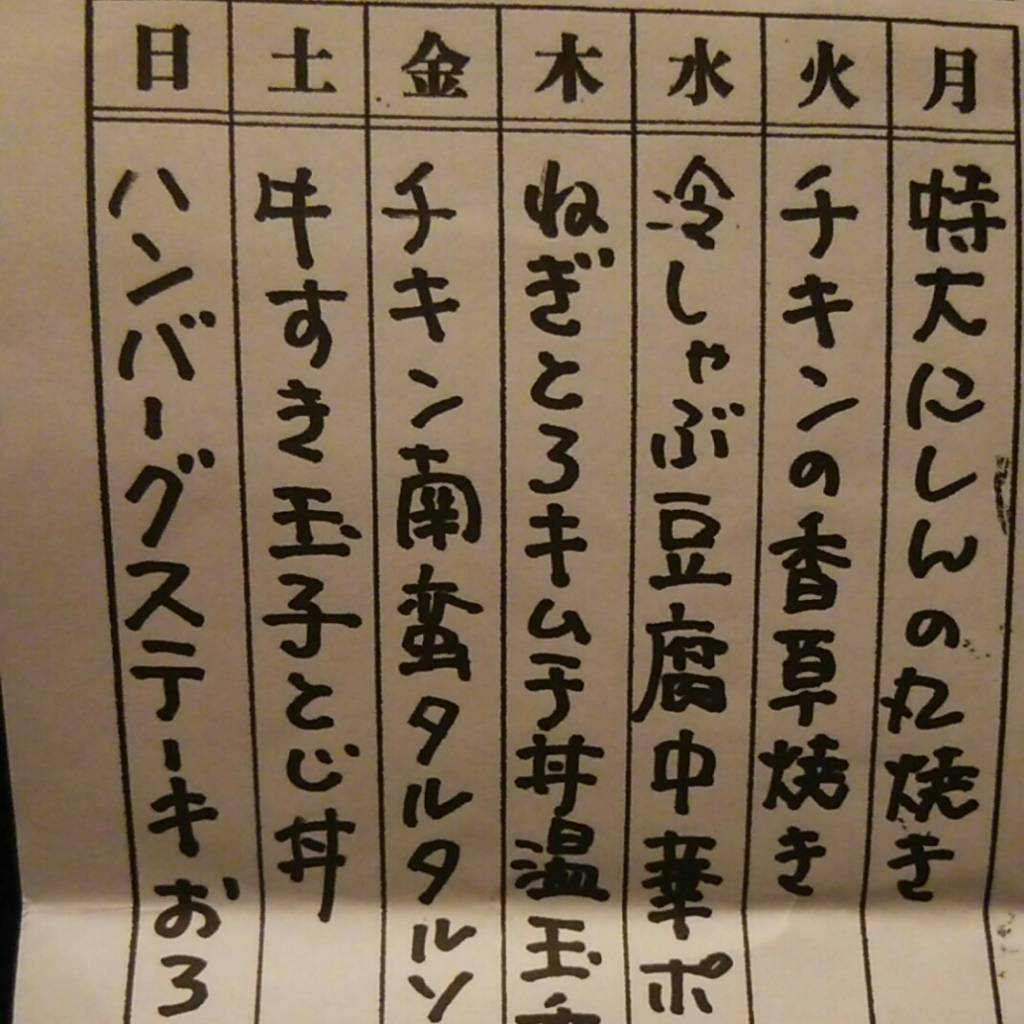 月
特大にしんの丸焼き
火
チキンの香草焼き
水
冷しゃぶ豆腐中華ポ
木
ねぎとろキムチ丼温玉
金
チキン南蛮タルタルソ
土
牛すき玉子とじ丼
日
ハンバーグステーキおろ